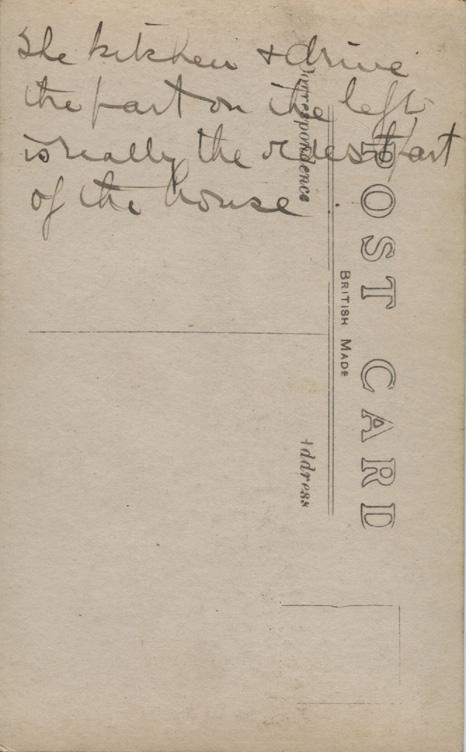 The kitchen & drive
the part on the left
is really the oldest part
of the house
POST CARD
BRITISH MADE
Correspondence
Address